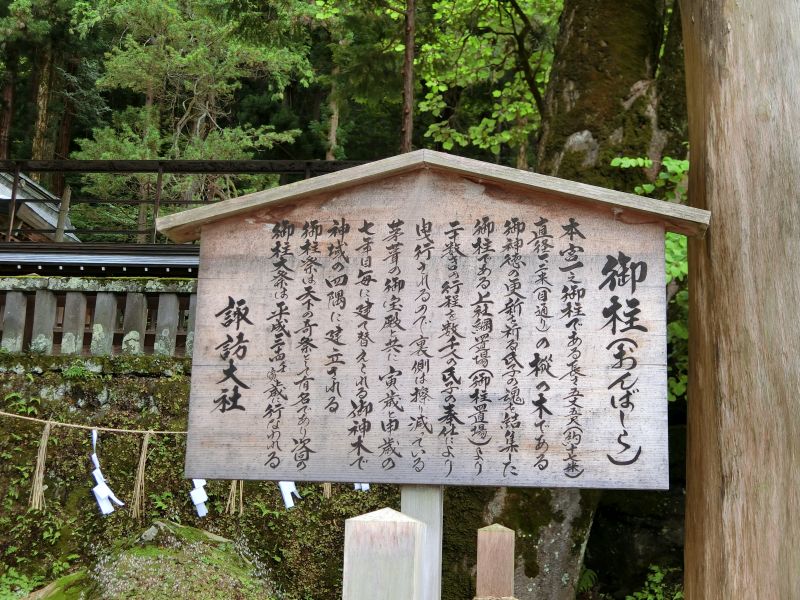 御柱(おんばしら)
本宮一之御柱である長さ五丈五尺(約十七米)
直径(目通り)の樅の木である
御神徳の更新を祈る氏子の魂を結集した
御柱である上社綱置場(御柱置場)より
二十数キロの行程を数千人の氏子の奉仕により
曳行されるので裏側は擦り減っている
茅葺の御宝殿と共に寅歳申歳の
七年目毎に建て替えられる御神木で
神域の四隅に建立される
御柱祭は天下の奇祭として有名であり次回の
御柱大祭は平成歳に行なわれる
諏訪大社